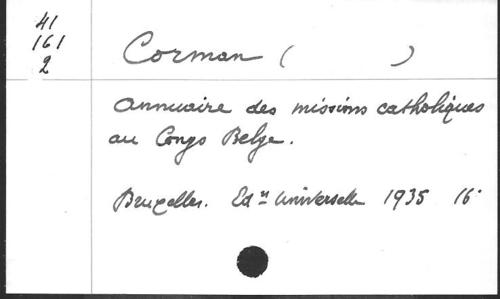 41
161
2
Corman ( )
Annuaire des missions catholiques
au Congo Belge.
Bruxelles. Edns Universelle 1935 16°